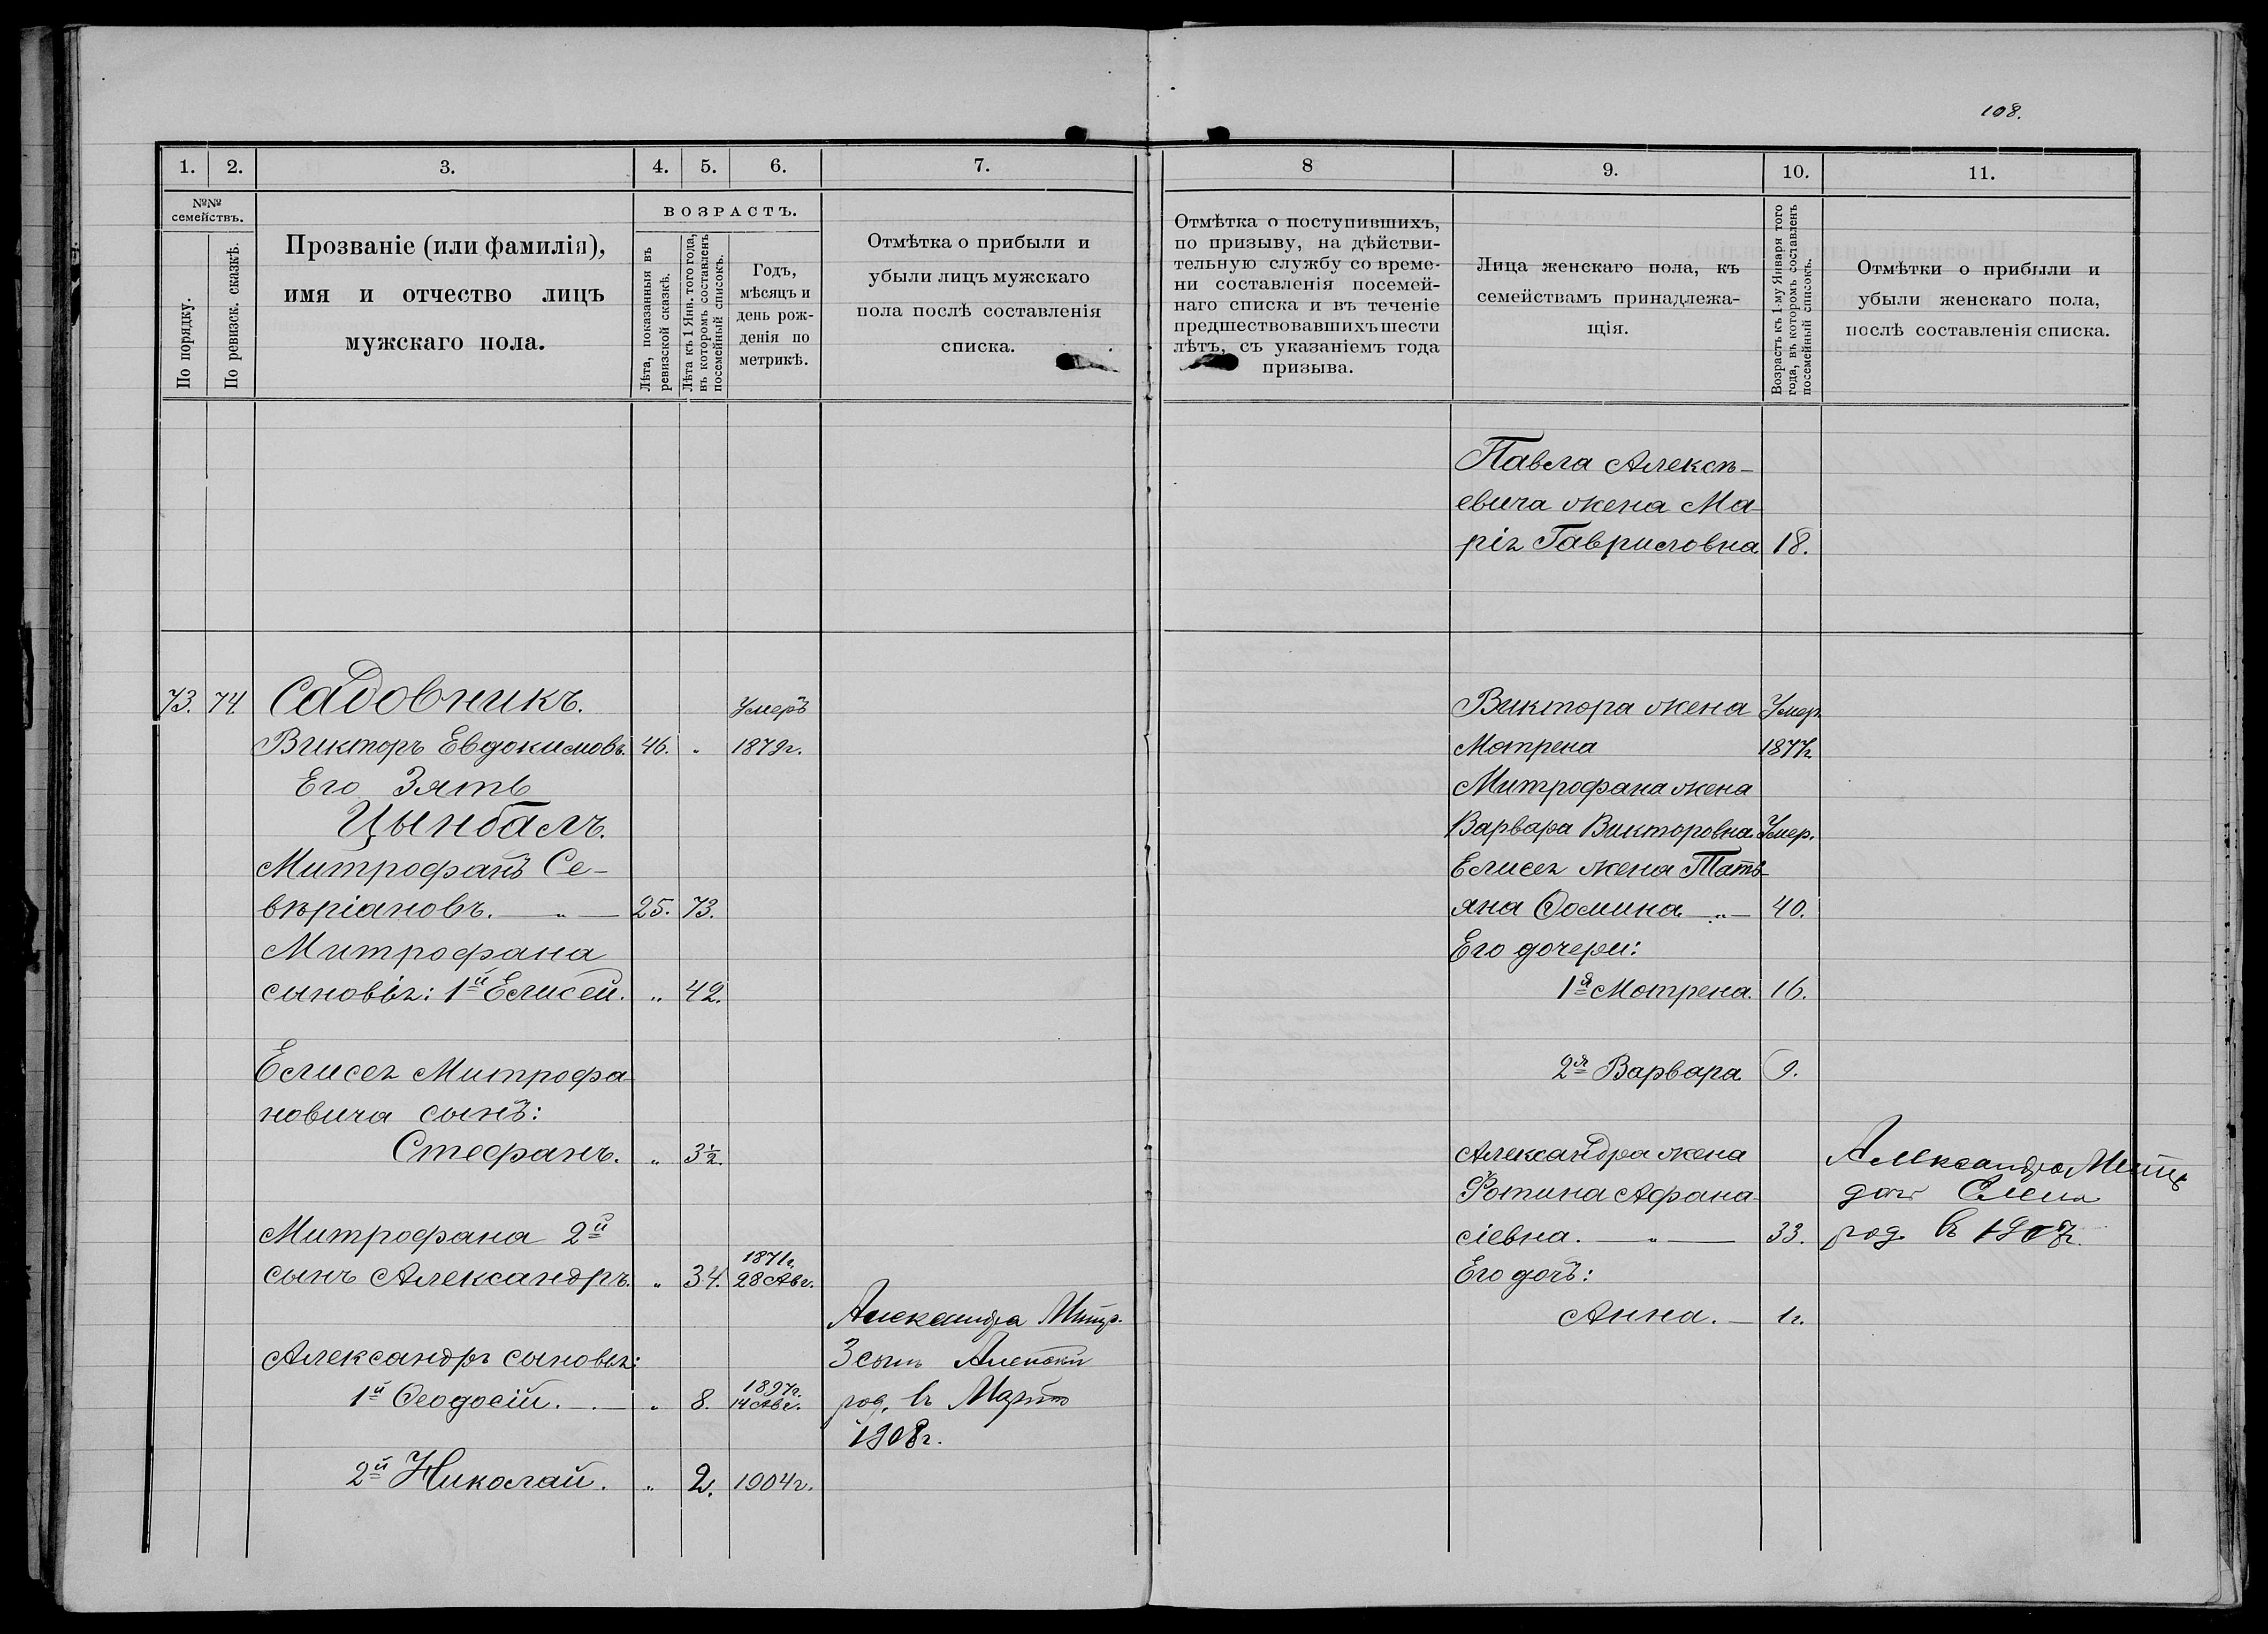 108.
1. 2. 3. 4. 5. 6. 7.
№№ семействъ.
По порядку.
По ревизск. сказкѣ.
Прозваніе (или фамилія),
имя и отчество лицъ
мужскаго пола.
ВОЗРАСТЪ.
Лѣта, показанныя въ
ревизской сказкѣ.
Лѣта къ 1 Янв. того года,
въ которомъ составленъ
посемейный списокъ.
Годъ,
мѣсяцъ и
день рож-
денія по
метрикѣ.
Отмѣтка о прибыли и
убыли лицъ мужскаго
пола послѣ составленія
списка.
73. 74. Садовникъ. Умеръ
Викторъ Евдокимовъ. 46. „ 1879г.
Его Зять
Цынбалъ.
Митрофанъ Се-
вѣріановъ. — „ — 25. 73.
Митрофана
сыновья: 1й Елисей. „ 42.
Елисея Митрофа-
новича сынъ:
Стефанъ. „ 3½.
Митрофана 2й
1871г.
сынъ Александръ. „ 34. 28 Авг.
Александра Митр.
Александръ сыновья: 3 сынъ
1897г.
1й Ѳеодосій. — „ 8. 14 Авг. род. въ
1908г.
2й Николай. „ 2. 1904г.
8 9. 10. 11.
Отмѣтка о поступившихъ,
по призыву, на дѣйстви-
тельную службу со време-
ни составленія посемей-
наго списка и въ теченіе
предшествовавшихъ шести
лѣтъ, съ указаніемъ года
призыва.
Лица женскаго пола, къ
семействамъ принадлежа-
щія.
Возрастъ къ 1-му Января того
года, въ которомъ составленъ
посемейный списокъ.
Отмѣтки о прибыли и
убыли женскаго пола,
послѣ составленія списка.
Павла Алексѣ-
евича жена Ма-
рія Гавриловна 18.
Виктора жена Умер.
Мотрена 1877г.
Митрофана жена
Варвара Викторовна. Умер.
Елисея жена Тать-
яна Ѳомина — „ — 40.
Его дочери:
1я Мотрена. 16.
2я Варвара 9.
Александра жена Александра Митр
Фотина Афана- дочь
сіевна. — „ — 33. род. въ 1907г.
Его дочь:
Анна. — 1г.